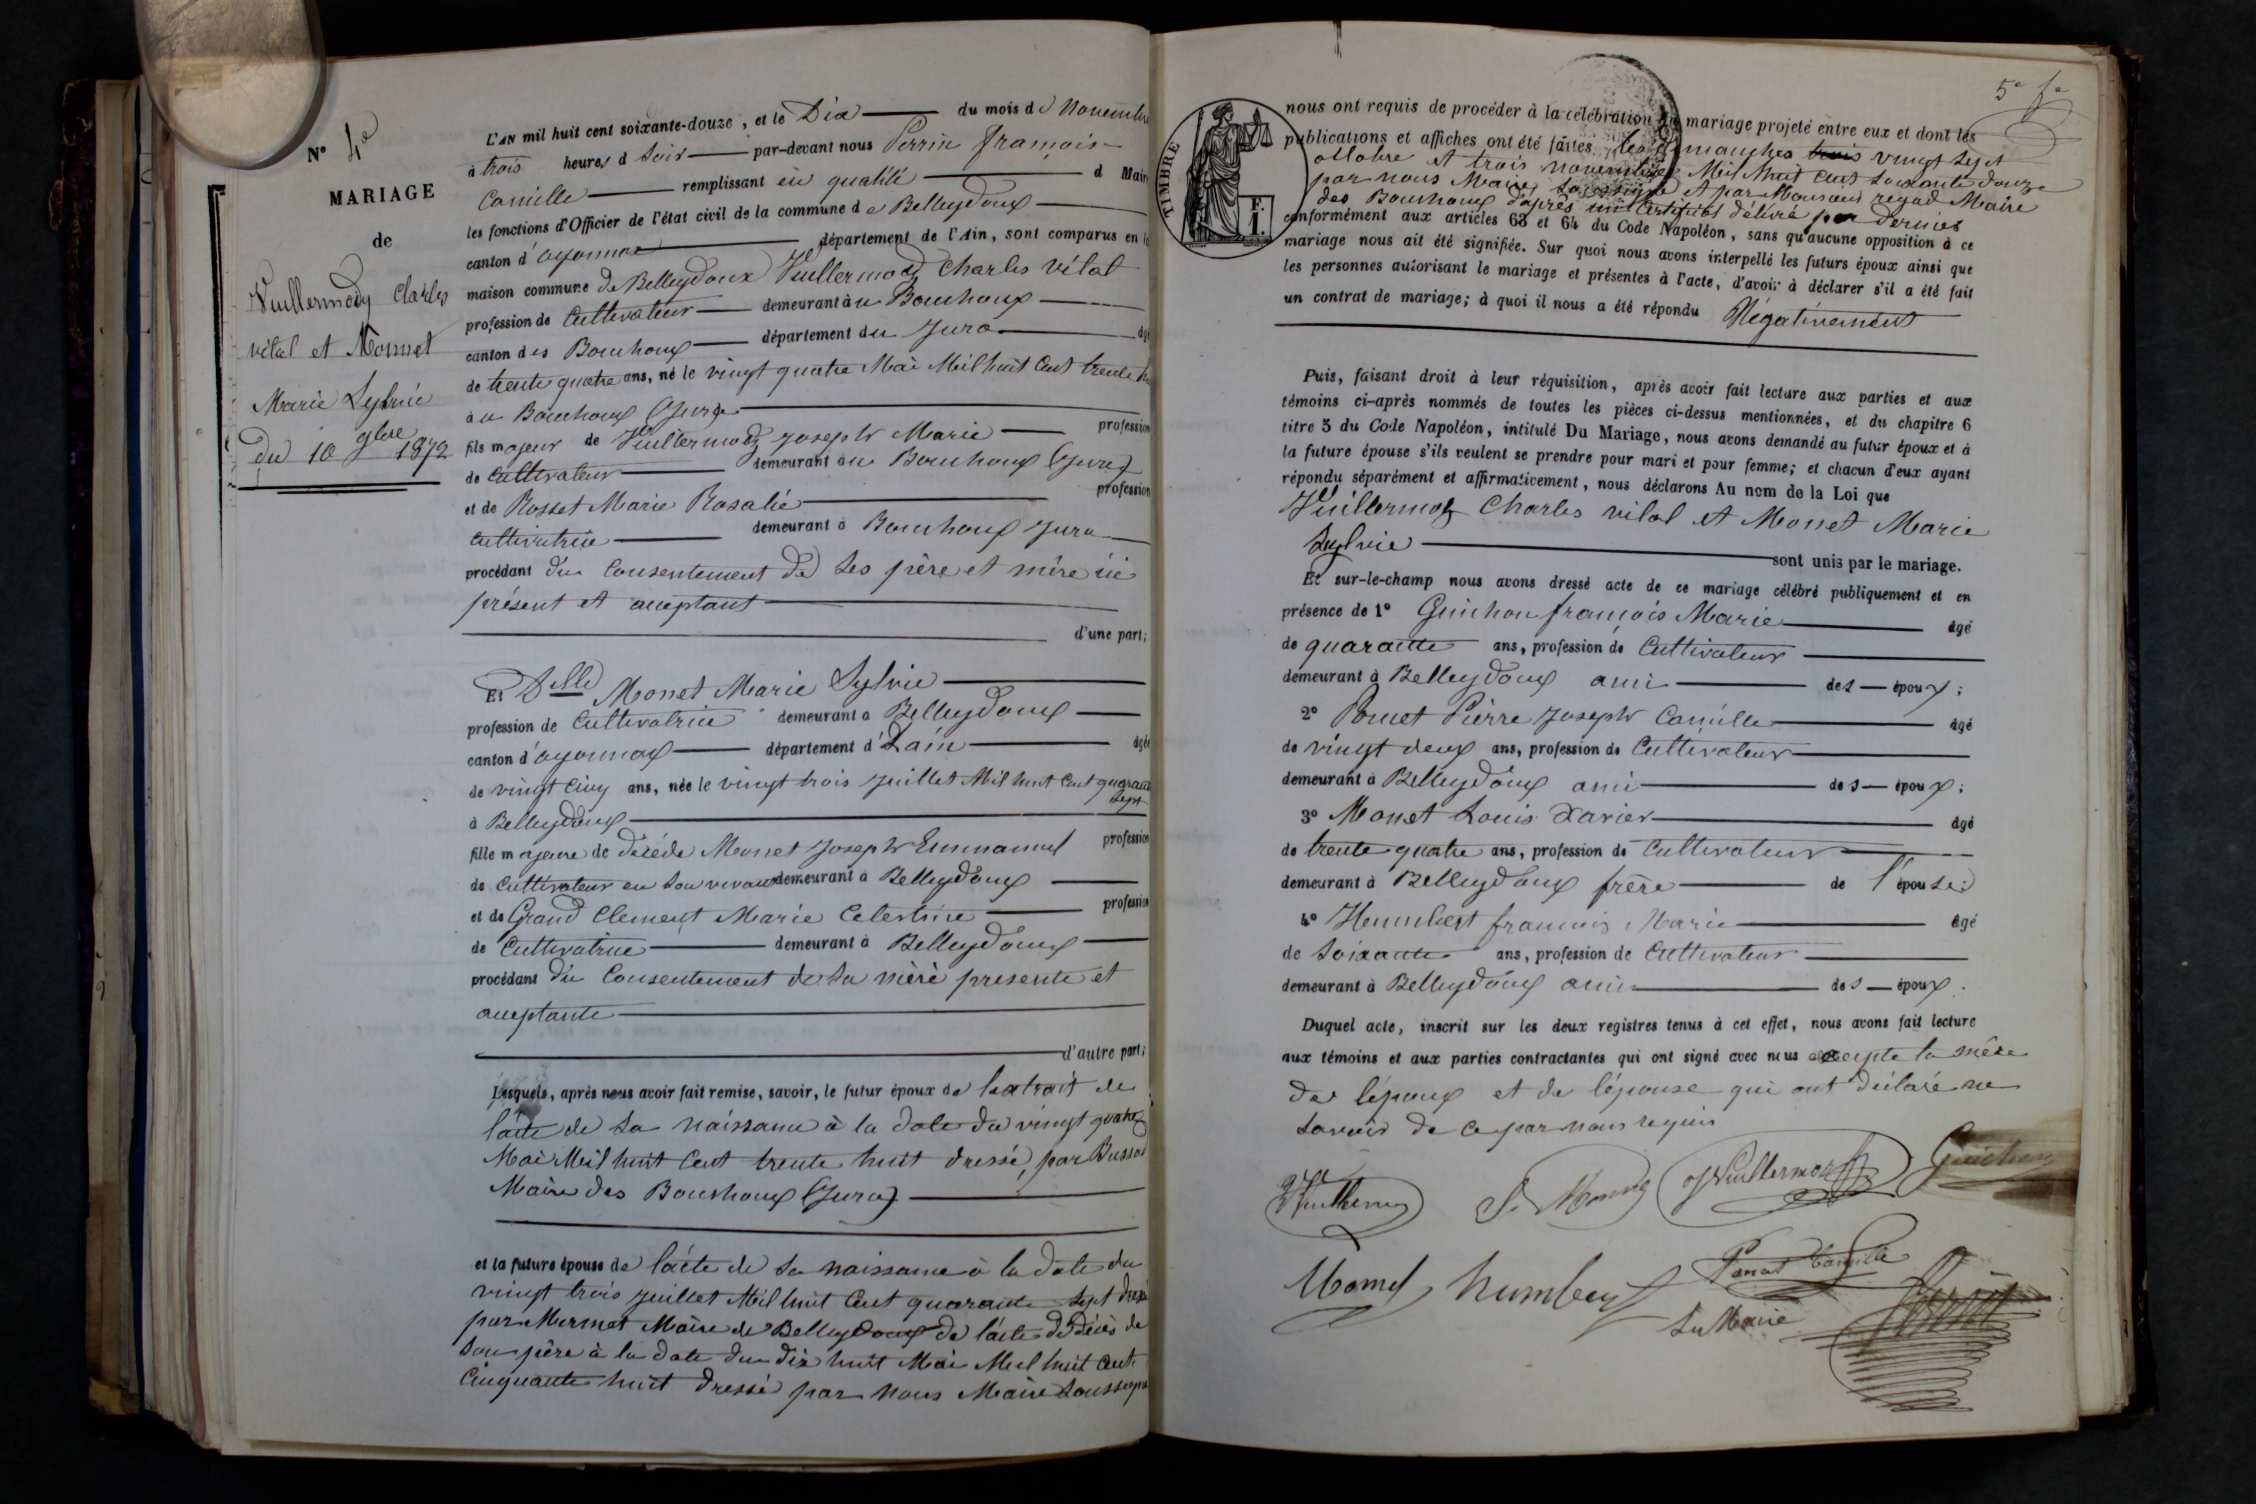 N° 4e
MARIAGE
de
Vuillermoz Charles
vital et Monnet
Marie Sylvie
du 10 9bre 1872
L'AN mil huit cent soixante-douze, et le Dix du mois de Novembre
à trois heures d soir par-devant nous Perrin françois
Camille remplissant en qualité d Maire
les fonctions d'Officier de l'état civil de la commune de Belleydoux
canton d'oyonnax département de l'Ain, sont comparus en la
maison commune de Belleydoux Vuillermoz Charles vital
profession de Cultivateur demeurant au Bouchoux
canton des Bouchoux département du Jura âgé
de trente quatre ans, né le vingt quatre Mai Mil huit Cent trente huit
à u Bouchoux (Jura)
fils majeur de Vuillermoz Joseph Marie profession
de Cultivateur demeurant au Bouchoux (Jura)
et de Rosset Marie Rosalie profession
Cultivatrice demeurant à Bouchoux Jura
procédant du Consentement de Ses père et mère ici
présent et acceptant
d'une part;
Et Delle Monet Marie Sylvie
profession de Cultivatrice demeurant à Belleydoux
canton d'oyonnax département d'Lain âgée
de vingt cinq ans, née le vingt trois Juillet Mil huit Cent quarante
Sept
à Belleydoux
fille majeure de décédé Monet Joseph Emmanuel profession
de Cultivateur en son vivant demeurant à Belleydoux
et de Grand Clement Marie Celestine profession
de Cultivatrice demeurant à Belleydoux
procédant du Consentement de Sa mère présente et
acceptante
d'autre part;
Lesquels, après nous avoir fait remise, savoir, le futur époux de lextrait de
lacte de Sa naissance à la date du vingt quatre
Mai Mil huit Cent trente huit dressé par Bussod
Maire des Bouchoux (Jura)
et la future épouse de lacte de Sa naissance à la date du
vingt trois Juillet Mil huit Cent quarante Sept dressé
par Mermet Maire de Belleydoux de lacte de décès de
Son père à la date du dix huit Mai Mil huit Cent
Cinquante huit dressé par nous Maire Soussigné
5e fe
TIMBRE
F.
1.
nous ont requis de procéder à la célébration du mariage projeté entre eux et dont les
publications et affiches ont été faites les dimanches trois vingt Sept
octobre et trois novembre Mil huit Cent Soixante douze
par nous Maire Soussigné et par Monsieur regad Maire
des Bouchoux d'après un Certificat délivré par Dernier
conformément aux articles 63 et 64 du Code Napoléon, sans qu'aucune opposition à ce
mariage nous ait été signifiée. Sur quoi nous avons interpellé les futurs époux ainsi que
les personnes autorisant le mariage et présentes à l'acte, d'avoir à déclarer s'il a été fait
un contrat de mariage; à quoi il nous a été répondu Négativement
Puis, faisant droit à leur réquisition, après avoir fait lecture aux parties et aux
témoins ci-après nommés de toutes les pièces ci-dessus mentionnées, et du chapitre 6
titre 5 du Code Napoléon, intitulé Du Mariage, nous avons demandé au futur époux et à
la future épouse s'ils veulent se prendre pour mari et pour femme; et chacun d'eux ayant
répondu séparément et affirmativement, nous déclarons Au nom de la Loi que
Vuillermoz Charles vital et Monet Marie
Sylvie sont unis par le mariage.
Et sur-le-champ nous avons dressé acte de ce mariage célébré publiquement et en
présence de 1° Guichon françois Marie âgé
de quarante ans, profession de Cultivateur
demeurant à Belleydoux ami des époux;
2° Poncet Pierre Joseph Camille âgé
de vingt deux ans, profession de Cultivateur
demeurant à Belleydoux ami des époux;
3° Monet Louis Xavier âgé
de trente quatre ans, profession de Cultivateur
demeurant à Belleydoux frère de l'épouse
4° Hummbert francois Marie âgé
de Soixante ans, profession de Cultivateur
demeurant à Belleydoux ami des époux.
Duquel acte, inscrit sur les deux registres tenus à cet effet, nous avons fait lecture
aux témoins et aux parties contractantes qui ont signé avec nous excepte la mère
de lépoux et de lépouse qui ont déclaré ne
Savoir de ce par nous requis
S. Monnet
Vuillermoz
Guichon
Monet
humbert
Poncet Camille
Le Maire
Perrin